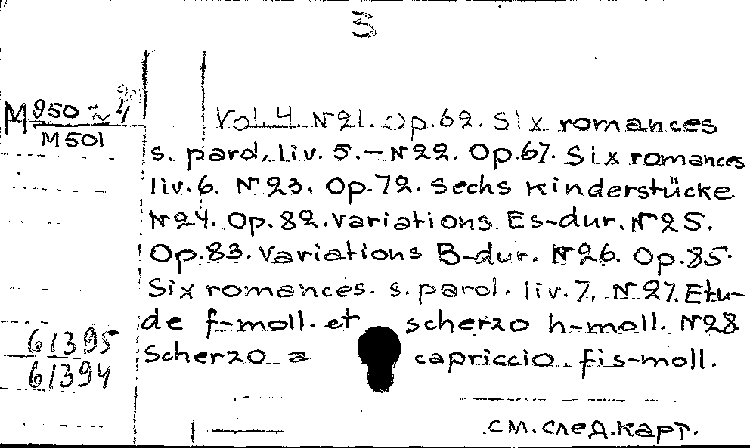 3
M 950~4
M 501
Vol. 4. №21. Op.62. Six romances
s. parol. liv. 5. – №22. Op.67. Six romances
liv. 6. №23. Op.72. Sechs Kinderstücke
№24. Op.82. Variations Es-dur. №25.
Op.83. Variations B-dur. №26. Op.85.
Six romances. s. parol. liv. 7. №27. Etu-
de f-moll. et scherzo h-moll. №28
Scherzo a capriccio fis-moll.
61395
61394
см. след. карт.